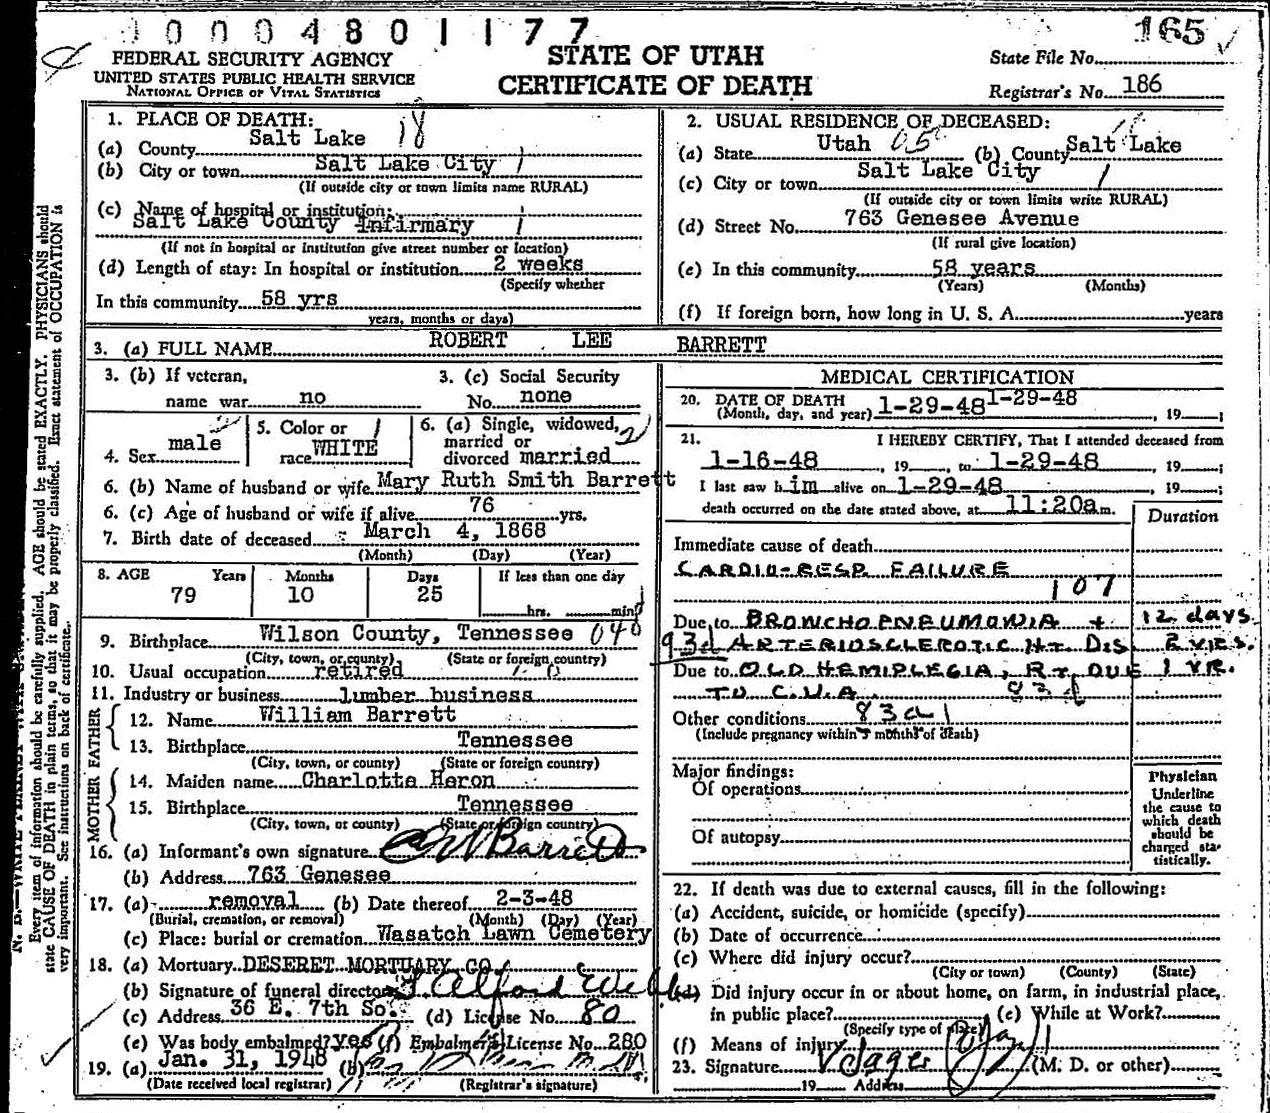 0 0 0 0 4 8 0 1 1 7 7
165
FEDERAL SECURITY AGENCY
UNITED STATES PUBLIC HEALTH SERVICE
NATIONAL OFFICE OF VITAL STATISTICS
STATE OF UTAH
CERTIFICATE OF DEATH
State File No.
Registrar's No. 186
1. PLACE OF DEATH:
(a) County Salt Lake 18
(b) City or town Salt Lake City 1
(If outside city or town limits name RURAL)
(c) Name of hospital or institution:
Salt Lake County Infirmary 1
(If not in hospital or institution give street number or location)
(d) Length of stay: In hospital or institution 2 weeks
(Specify whether
In this community 58 yrs
years, months or days)
2. USUAL RESIDENCE OF DECEASED:
(a) State Utah 05 (b) County Salt Lake
(c) City or town Salt Lake City 1
(If outside city or town limits write RURAL)
(d) Street No. 763 Genesee Avenue
(If rural give location)
(e) In this community 58 years
(Years) (Months)
(f) If foreign born, how long in U. S. A. years
3. (a) FULL NAME ROBERT LEE BARRETT
3. (b) If veteran,
name war no
3. (c) Social Security
No. none
4. Sex male
5. Color or
race WHITE
6. (a) Single, widowed,
married or
divorced married
2
6. (b) Name of husband or wife Mary Ruth Smith Barrett
6. (c) Age of husband or wife if alive 76 yrs.
7. Birth date of deceased March 4, 1868
(Month) (Day) (Year)
8. AGE Years Months Days If less than one day
79 10 25
hrs. min.
9. Birthplace Wilson County, Tennessee 040
(City, town, or county) (State or foreign country)
10. Usual occupation retired
11. Industry or business lumber business
FATHER
12. Name William Barrett
13. Birthplace Tennessee
(City, town, or county) (State or foreign country)
MOTHER
14. Maiden name Charlotte Heron
15. Birthplace Tennessee
(City, town, or county) (State or foreign country)
16. (a) Informant's own signature Barrett
(b) Address 763 Genesee
17. (a) removal (b) Date thereof 2-3-48
(Burial, cremation, or removal) (Month) (Day) (Year)
(c) Place: burial or cremation Wasatch Lawn Cemetery
18. (a) Mortuary DESERET MORTUARY CO
(b) Signature of funeral director Alford Webb
(c) Address 36 E. 7th So. (d) License No. 80
(e) Was body embalmed? yes (f) Embalmer's License No. 280
19. (a) Jan. 31, 1948 (b)
(Date received local registrar) (Registrar's signature)
MEDICAL CERTIFICATION
20. DATE OF DEATH
(Month, day, and year) 1-29-48 1-29-48 , 19 ;
21. I HEREBY CERTIFY, That I attended deceased from
1-16-48 , 19 , to 1-29-48 , 19 ;
I last saw h im alive on 1-29-48 , 19 ;
death occurred on the date stated above, at 11:20a m.
Duration
Immediate cause of death
CARDIO-RESP. FAILURE
107
Due to BRONCHOPNEUMONIA + 12 days
93d ARTERIOSCLEROTIC HT. DIS. 2 YRS.
Due to OLD HEMIPLEGIA, RT. DUE 1 YR.
TO C.V.A. 83d
Other conditions 83a1
(Include pregnancy within 3 months of death)
Major findings:
Of operations
Of autopsy
Physician
Underline
the cause to
which death
should be
charged sta-
tistically.
22. If death was due to external causes, fill in the following:
(a) Accident, suicide, or homicide (specify)
(b) Date of occurrence
(c) Where did injury occur?
(City or town) (County) (State)
(d) Did injury occur in or about home, on farm, in industrial place,
in public place? (e) While at Work?
(Specify type of place)
(f) Means of injury
23. Signature (M. D. or other)
19 Address
N. B.—WRITE PLAINLY WITH
Every item of information should be carefully supplied. AGE should be stated EXACTLY. PHYSICIANS should
state CAUSE OF DEATH in plain terms, so that it may be properly classified. Exact statement of OCCUPATION is
very important. See instructions on back of certificate.